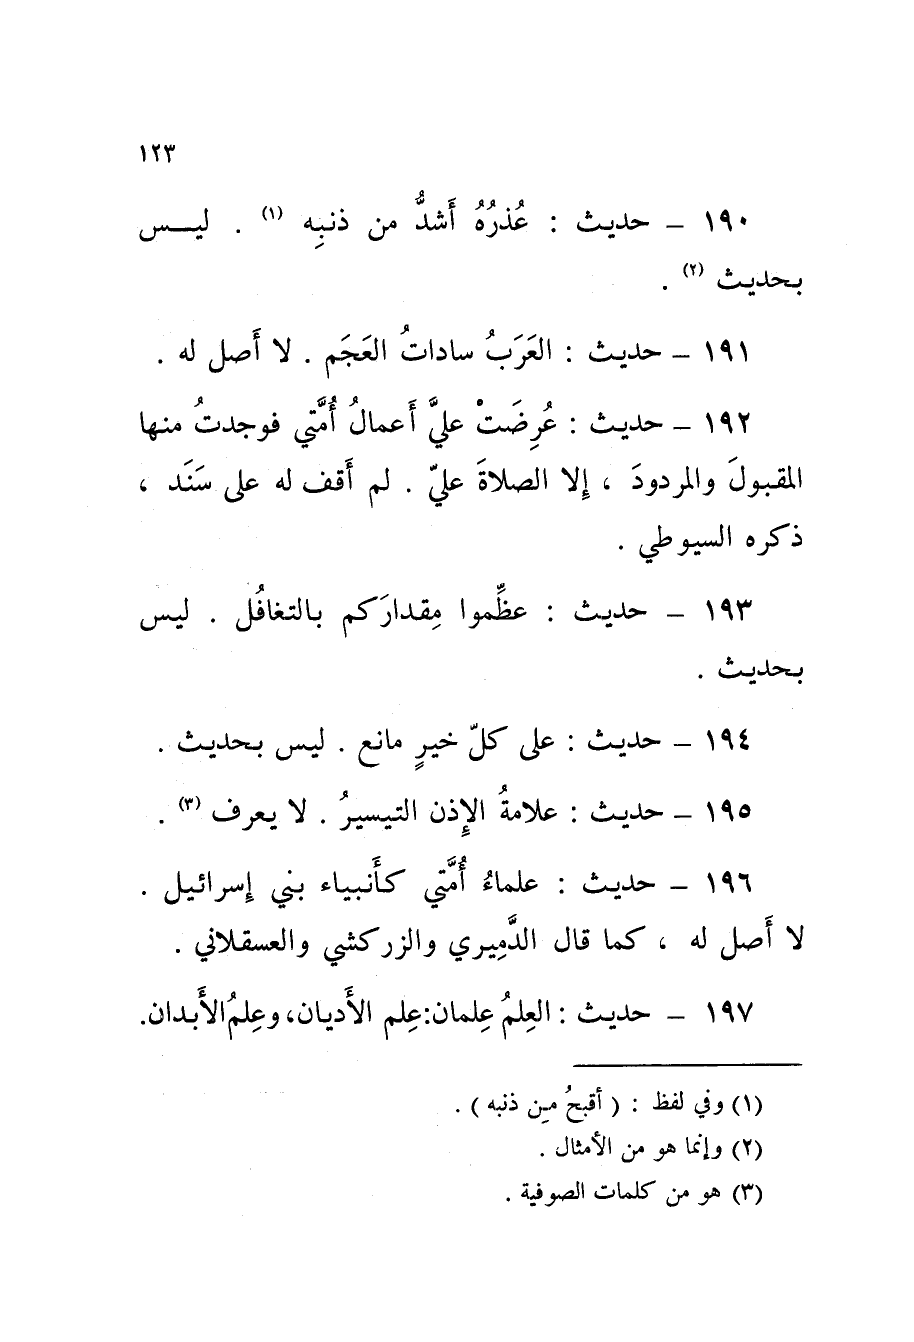 ١٢٣
١٩٠ – حديث : عُذرُهُ أَشدُّ من ذنبِه (١) . ليس
بحديث (٢) .
١٩١ – حديث : العَرَبُ ساداتُ العَجَم . لا أَصل له .
١٩٢ – حديث : عُرِضَتْ عليَّ أَعمالُ أُمَّتي فوجدتُ منها
المقبولَ والمردودَ ، إِلا الصلاةَ عليّ . لم أَقف له على سَنَد ،
ذكره السيوطي .
١٩٣ – حديث : عظِّموا مِقدارَكم بالتغافُل . ليس
بحديث .
١٩٤ – حديث : على كلّ خيرٍ مانع . ليس بحديث .
١٩٥ – حديث : علامةُ الإِذن التيسيرُ . لا يعرف (٣) .
١٩٦ – حديث : علماءُ أُمَّتي كأَنبياء بني إِسرائيل .
لا أَصل له ، كما قال الدَّمِيري والزركشي والعسقلاني .
١٩٧ – حديث : العِلمُ عِلمان:عِلم الأَديان،وعِلمُ الأَبدان.
(١) وفي لفظ : ( أقبحُ مِن ذنبه ) .
(٢) وإنما هو من الأمثال .
(٣) هو من كلمات الصوفية .